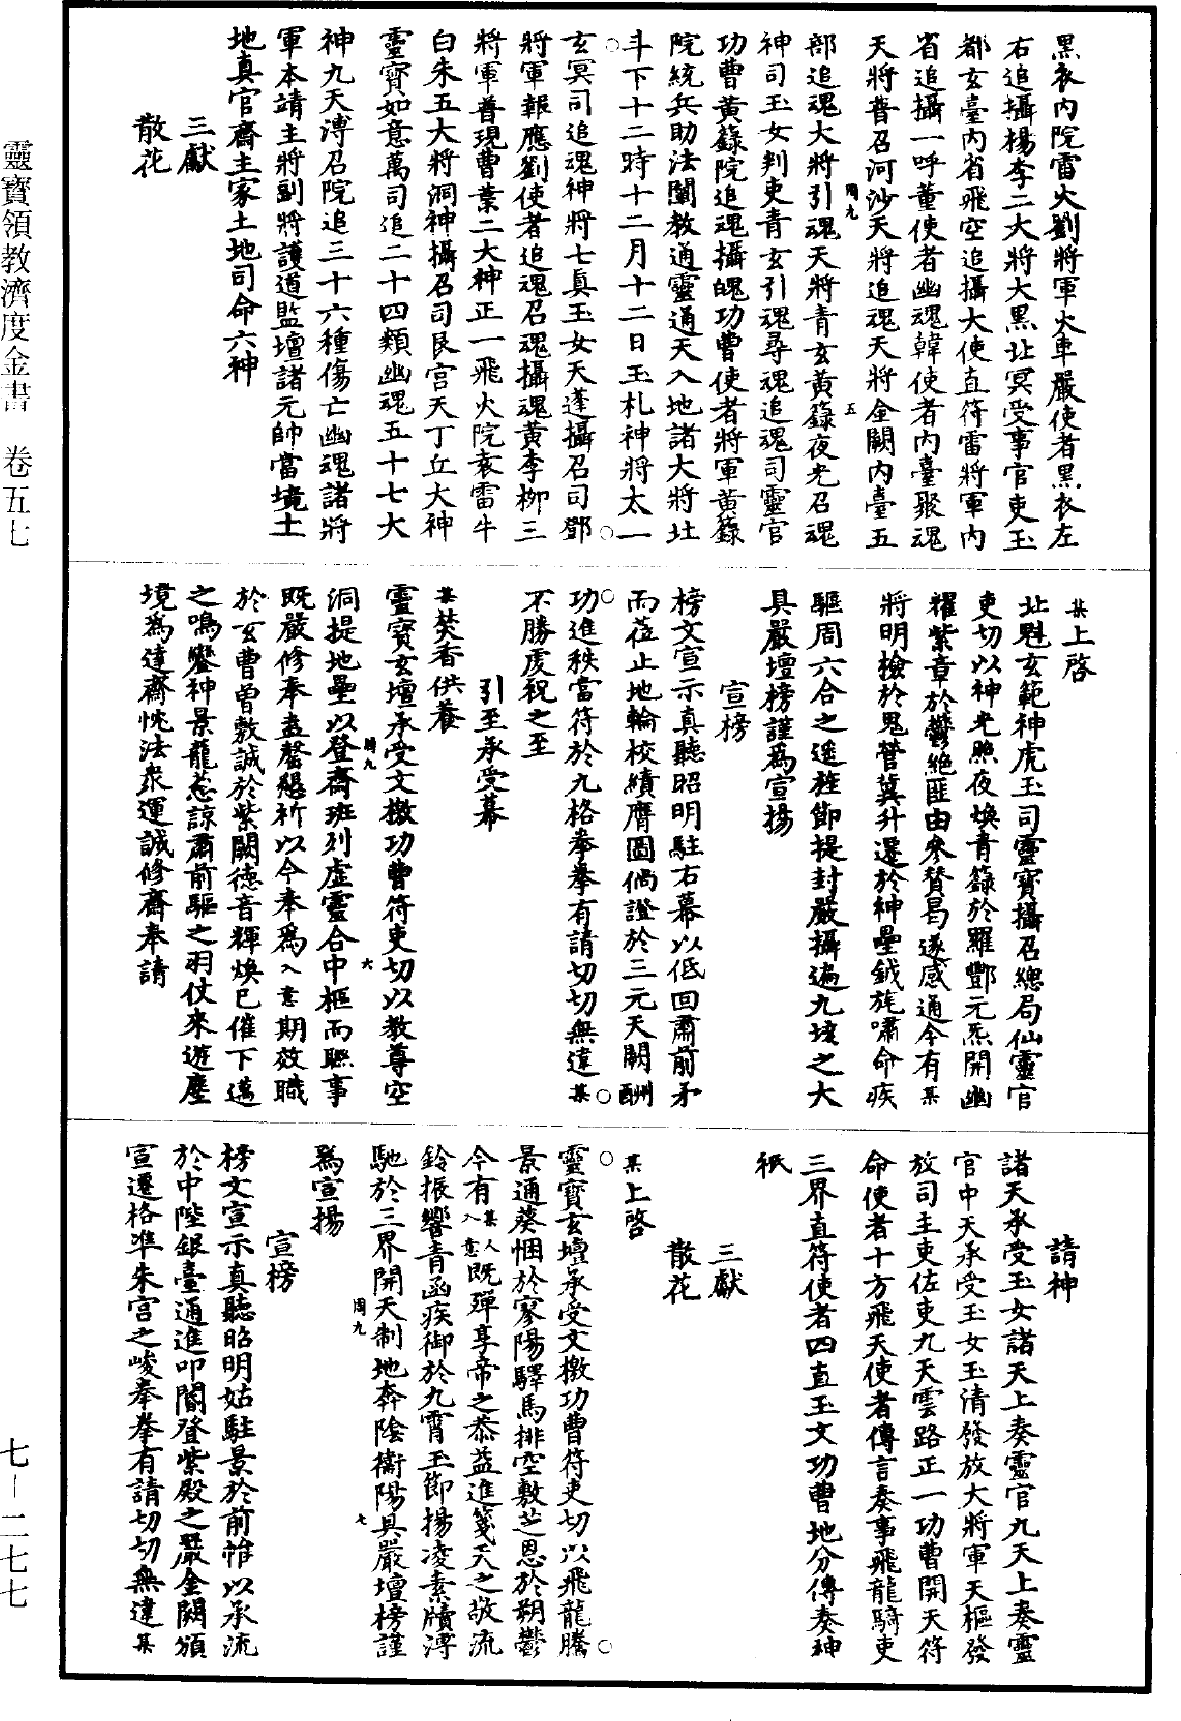 黑衣內院雷火劉將軍火車嚴使者黑衣左
右追攝楊李二大將大黑北冥受事官吏玉
都玄臺內省飛空追攝大使直符雷將軍內
省追攝一呼董使者幽魂韓使者內臺聚魂
天將普召河沙天將追魂天將金闕內臺五
周九 五
部追魂大將引魂天將青玄黃籙夜光召魂
神司玉女判吏青玄引魂尋魂追魂司靈官
功曹黃籙院追魂攝魄功曹使者將軍黃籙
院統兵助法闡教通靈通天入地諸大將北
斗下十二時十二月十二日玉札神將太一
玄冥司追魂神將七真玉女天蓬攝召司鄧
將軍報應劉使者追魂召魂攝魂黃李柳三
將軍普現曹葉二大神正一飛火院袁雷牛
白朱五大將洞神攝召司艮宮天丁丘大神
靈寶如意萬司追二十四類幽魂五十七大
神九天溥召院追三十六種傷亡幽魂諸將
軍本請主將副將護道監壇諸元帥當境土
地真官齋主家土地司命六神
三獻
散花
某上啓
北魁玄範神虎玉司靈寶攝召總局仙靈官
吏切以神光照夜煥青籙於羅酆元炁開幽
耀紫章於鬱絕匪由參贊曷遂感通今有某
將明檢於鬼營冀升遷於神壘鉞旄嘯命疾
驅周六合之遥旌節提封嚴攝遍九垓之大
具嚴壇榜謹為宣揚
宣榜
榜文宣示真聽昭明駐右幕以低回肅前矛
而莅止地輪校績膺圖倘證於三元天闕酬
功進秩當符於九格拳拳有請切切無違某
不勝虔祝之至
引至承受幕
某焚香供養
靈寶玄壇承受文檄功曹符吏切以教尊空
周九 六
洞提地壘以登齋班列虛靈合中樞而聯事
既嚴修奉盍罄懇祈以今奉為入意期效職
於玄曹曾敷誠於紫闕德音輝煥已催下邁
之鳴鑾神景龍葱諒肅前驅之羽仗來遊塵
境為達齋忱法衆運誠修齋奉請
請神
諸天承受玉女諸天上奏靈官九天上奏靈
官中天承受玉女玉清發放大將軍天樞發
放司主吏佐吏九天雲路正一功曹開天符
命使者十方飛天使者傳言奏事飛龍騎吏
三界直符使者四直玉文功曹地分傳奏神
祇
三獻
散花
某上啓
靈寶玄壇承受文檄功曹符吏切以飛龍騰
景通葵悃於寥陽驛馬排空敷芝恩於朔鬱
今有某人入意既殫享帝之恭益進箋天之敬流
鈴振響青函疾御於九霄玉節揚凌素牘溥
馳於三界開天制地奔陰衛陽具嚴壇榜謹
周九 七
為宣揚
宣榜
榜文宣示真聽昭明姑駐景於前惟以承流
於中陛銀臺通進叩閽登紫殿之嚴金闕頒
宣遷格準朱宮之峻拳拳有請切切無違某
靈寶領教濟度金書 卷五七
七—二七七